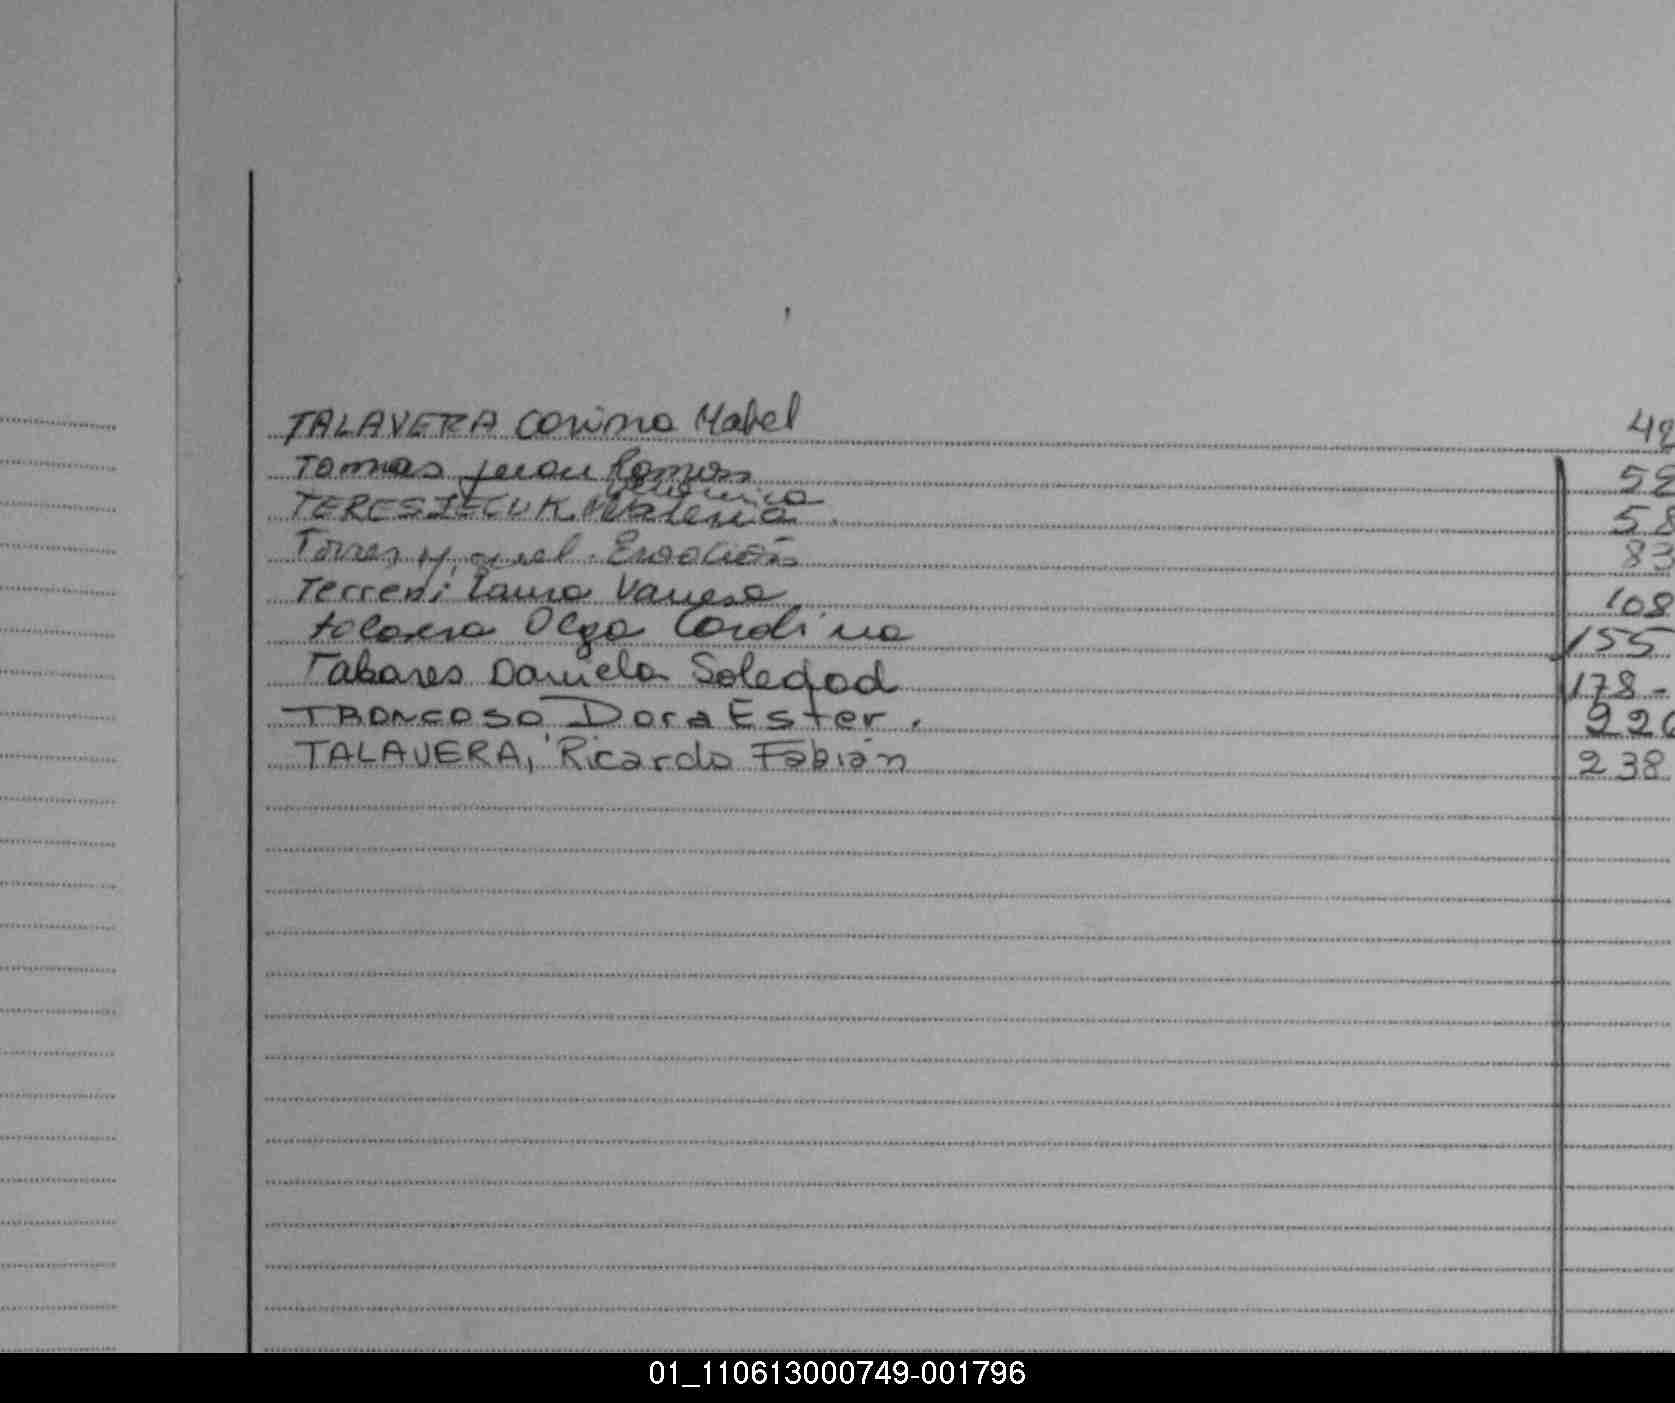 TALAVERA Corina Mabel 48
Tomas Juan Ramon 52
Verónica
TERESIECUK 58
Torres Miguel 83
Terreni Laura Vanesa 108
Olga Carolina 155
Tabares Daniela Soledad 178-
TRONCOSO Dora Ester. 226
TALAVERA, Ricardo Fabián 238
01_110613000749-001796